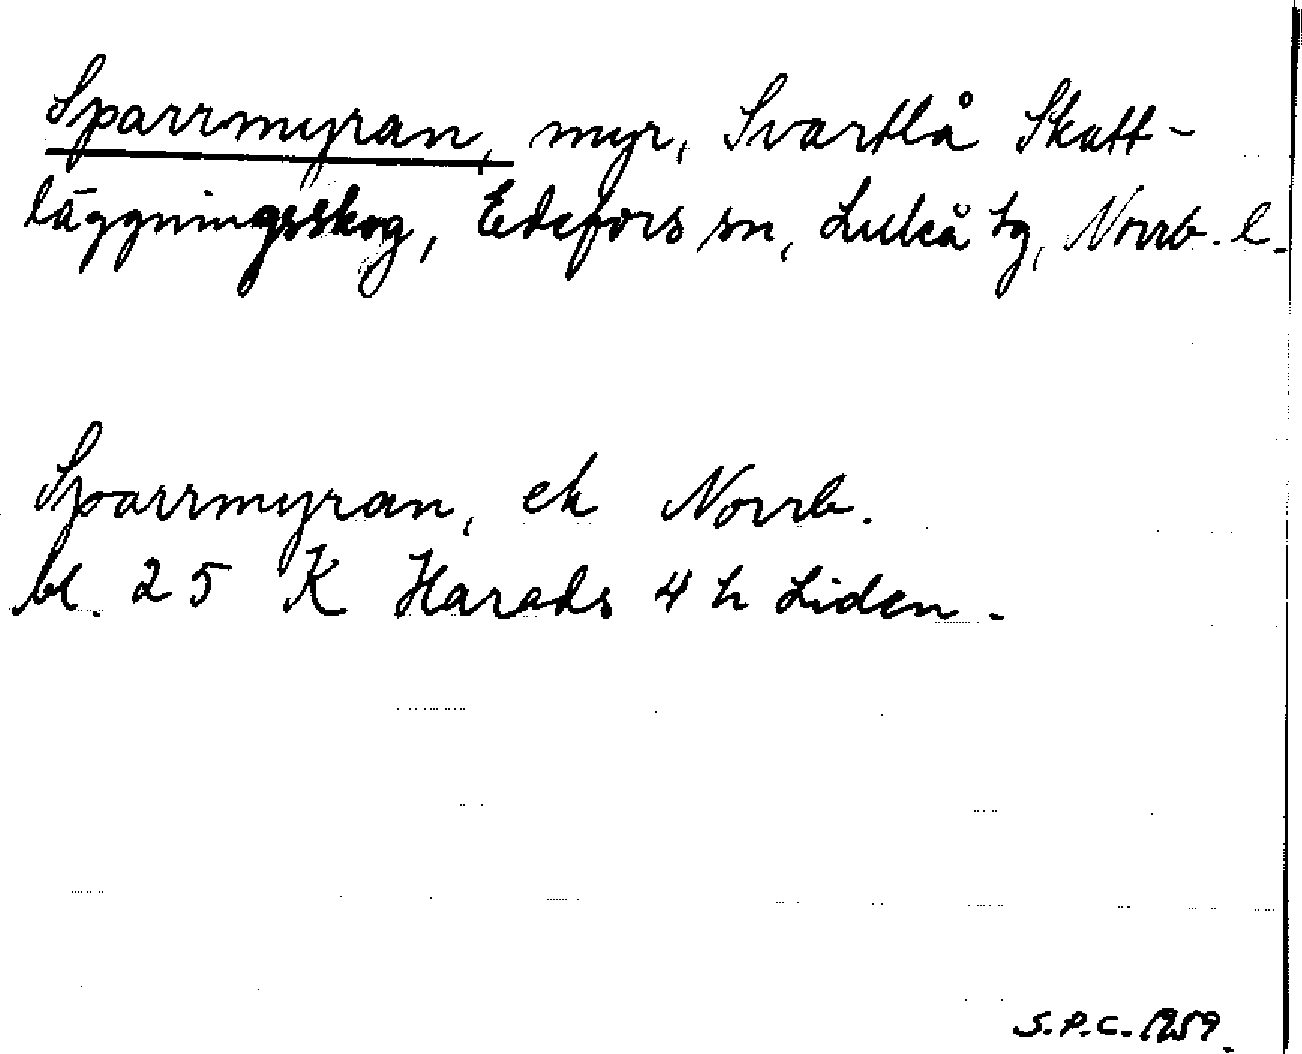 Sparrmyran, myr, Svartlå Skatt-
läggningsskog, Edefors sn, Luleå tg, Norrb. l.
Sparrmyran, ek Norrb.
bl. 25 K Harads 4 h Liden.
S.P.C. 1959.